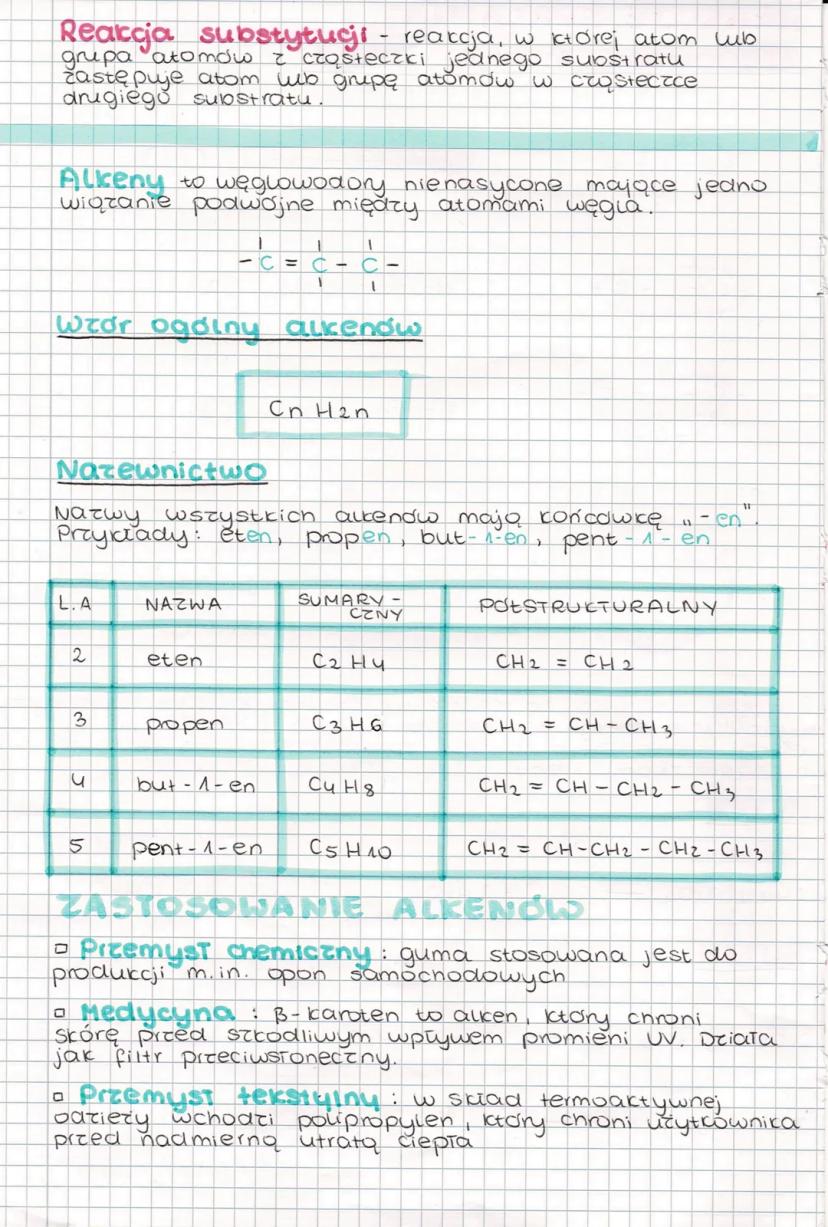 Reakcja substytucji - reakcja, w której atom lub
grupa atomów z cząsteczki jednego substratu
zastępuje atom lub grupę atomów w cząsteczce
drugiego substratu.
Alkeny to węglowodory nienasycone mające jedno
wiązanie podwójne między atomami węgla.
- C = C - C -
Wzór ogólny alkenów
CnH2n
Nazewnictwo
Nazwy wszystkich alkenów mają końcówkę „-en".
Przykłady: eten, propen, but-1-en, pent-1-en
L.A NAZWA SUMARY-
CZNY PÓŁSTRUKTURALNY
2 eten C2H4 CH2 = CH2
3 propen C3H6 CH2 = CH - CH3
4 but-1-en C4H8 CH2 = CH - CH2 - CH3
5 pent-1-en C5H10 CH2 = CH-CH2 - CH2-CH3
ZASTOSOWANIE ALKENÓW
□ Przemysł chemiczny: guma stosowana jest do
produkcji m.in. opon samochodowych
□ Medycyna: β-karoten to alken, który chroni
skórę przed szkodliwym wpływem promieni UV. Działa
jak filtr przeciwsłoneczny.
□ Przemysł tekstylny: w skład termoaktywnej
odzieży wchodzi polipropylen, który chroni użytkownika
przed nadmierną utratą ciepła